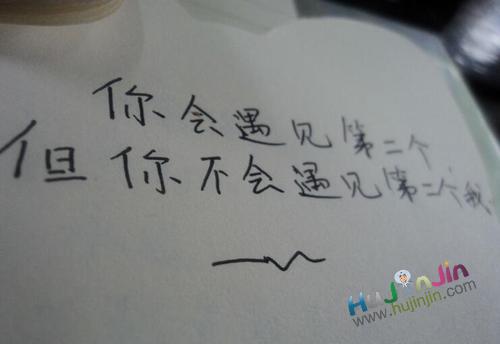 你会遇见第二个
但你不会遇见第二个我.
HuJinJin
www.hujinjin.com